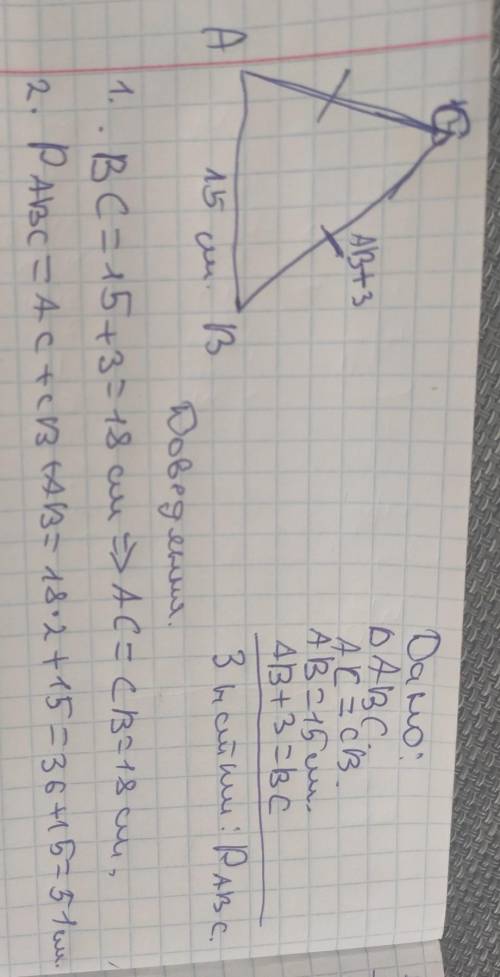 C
AB+3
A
15 см. B
Дано:
Δ ABC.
AC = CB.
AB = 15 см.
AB + 3 = BC
Знайти: P ABC.
Доведення.
1. . BC = 15 + 3 = 18 см ⇒ AC = CB = 18 см,
2. P ABC = AC + CB + AB = 18 · 2 + 15 = 36 + 15 = 51 см.